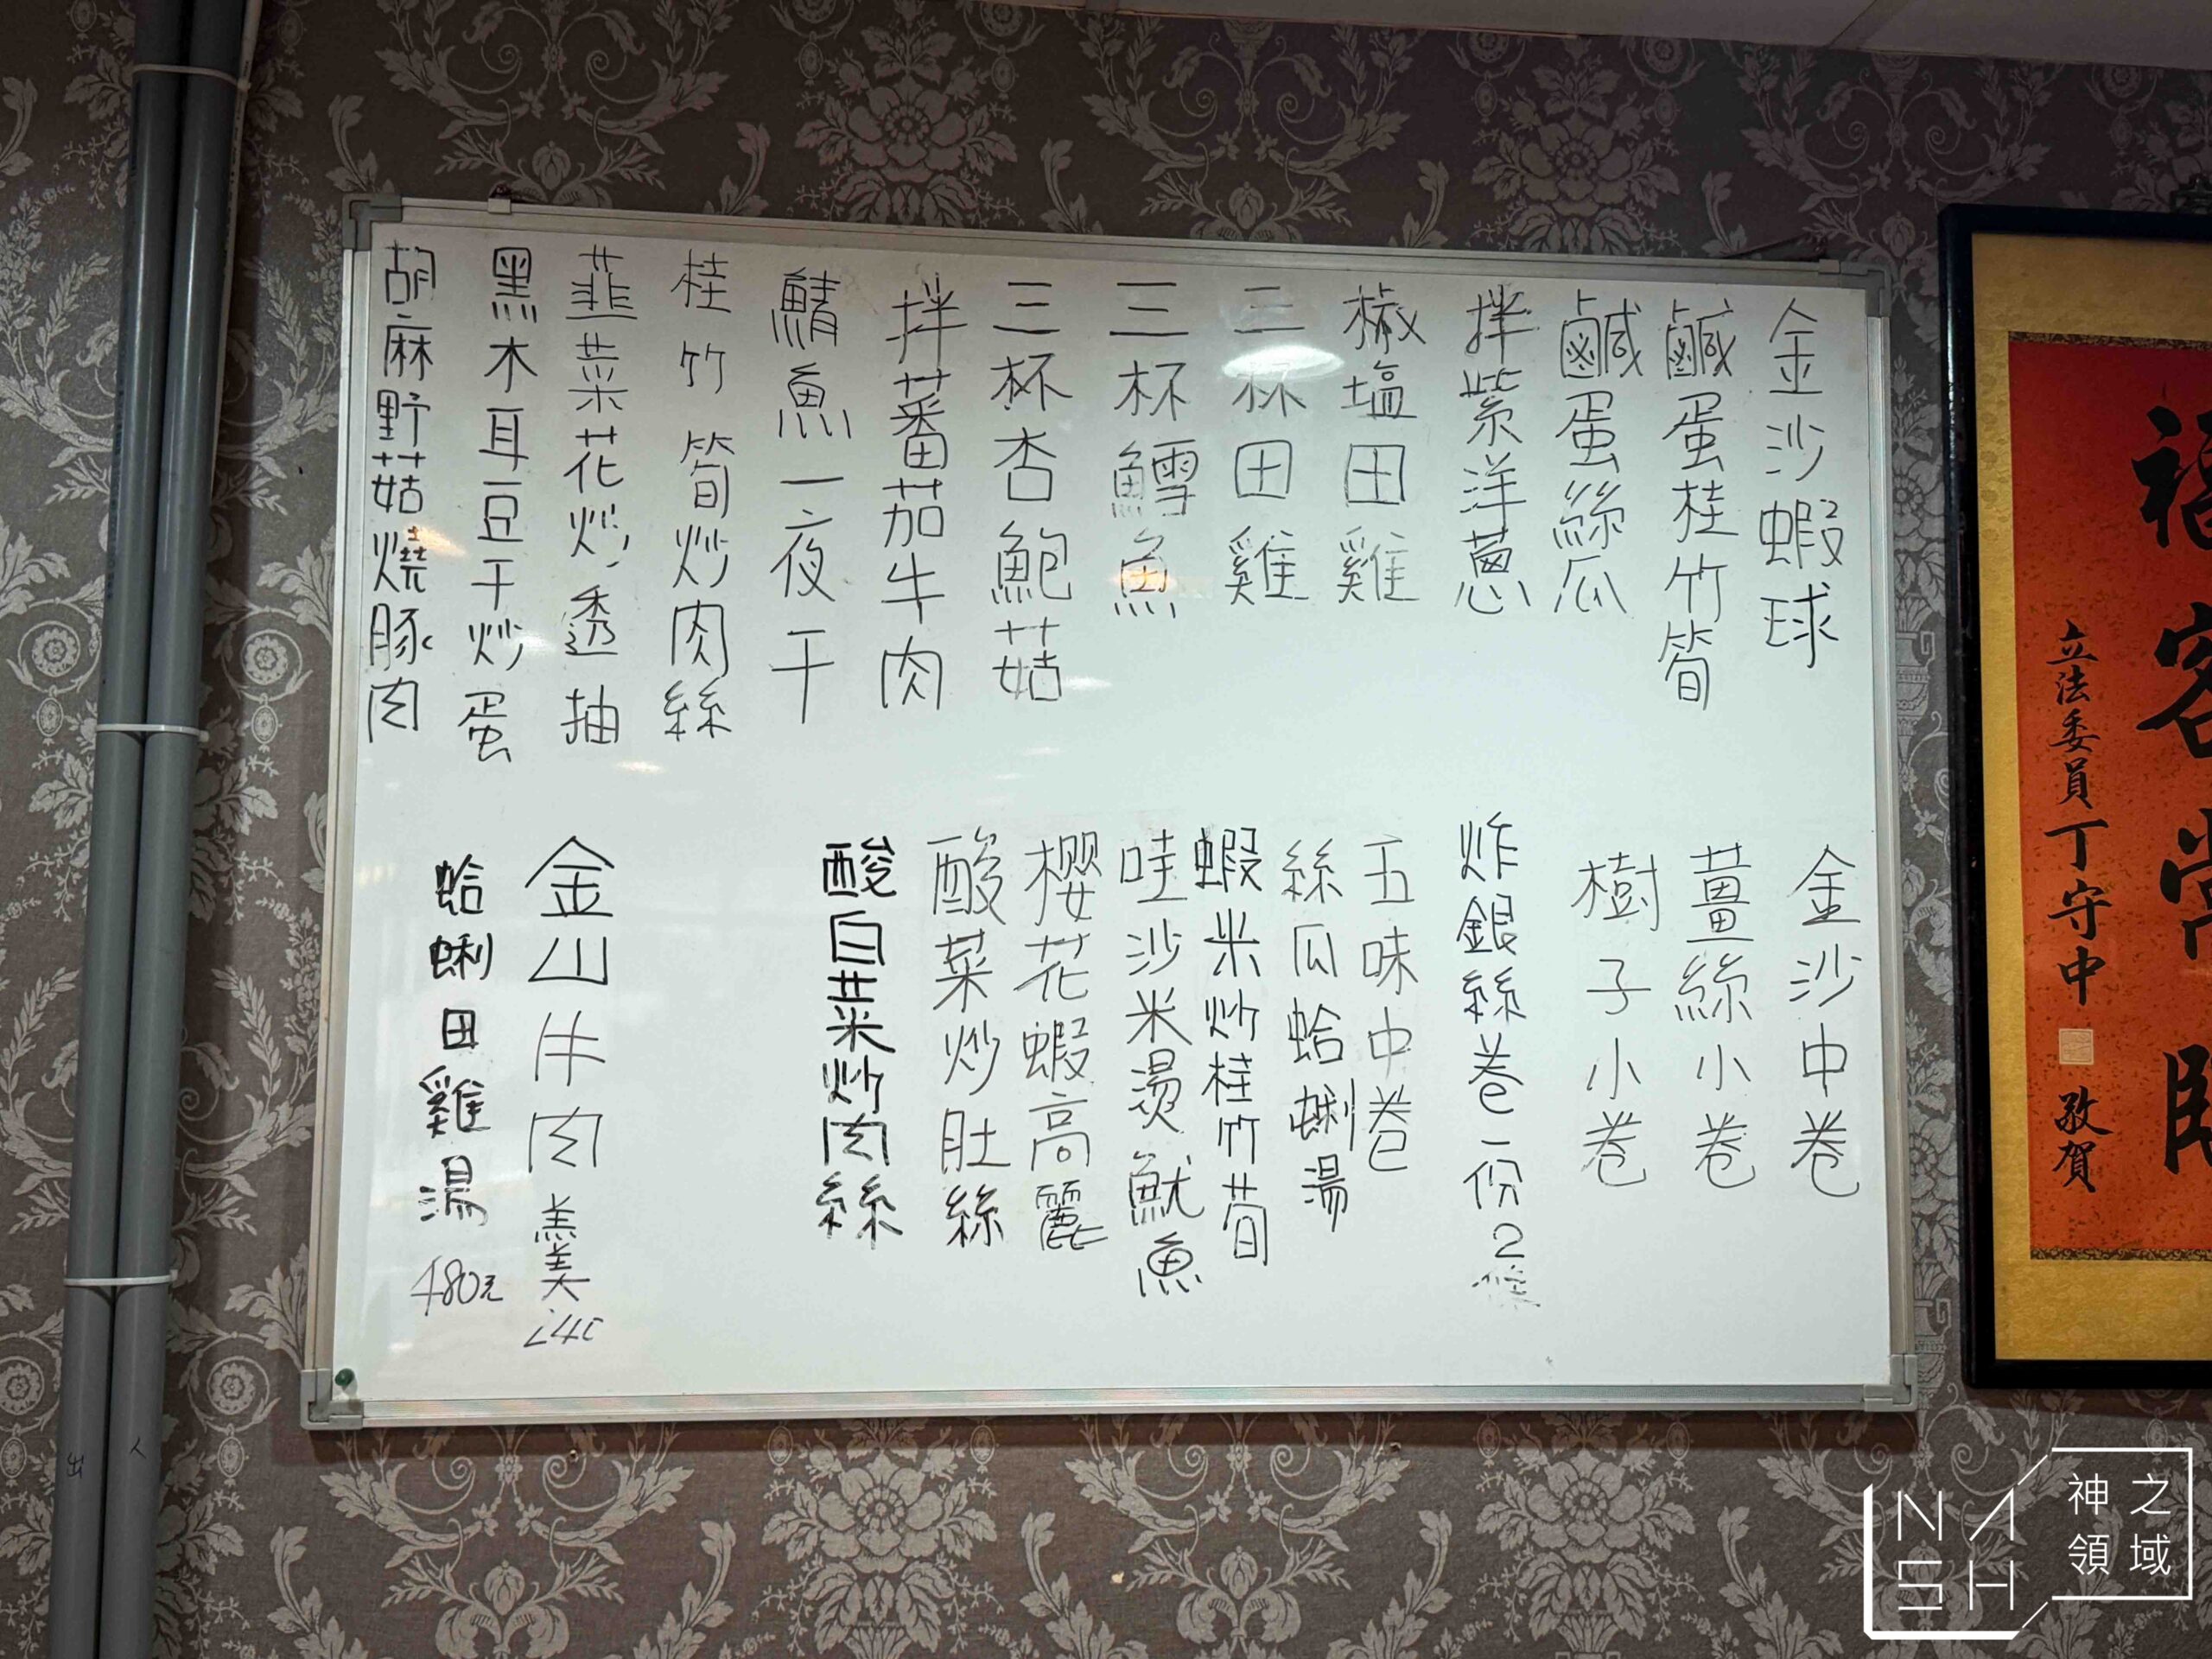 金沙蝦球
鹹蛋桂竹筍
鹹蛋絲瓜
拌紫洋蔥
椒塩田雞
三杯田雞
三杯鱈魚
三杯杏鮑菇
拌蕃茄牛肉
鯖魚一夜干
桂竹筍炒肉絲
韮菜花炒透抽
黑木耳豆干炒蛋
胡麻野菇燒豚肉
金沙中卷
薑絲小卷
樹子小卷
炸銀絲卷一份2條
五味中卷
絲瓜蛤蜊湯
蝦米炒桂竹筍
哇沙米燙魷魚
櫻花蝦高麗
酸菜炒肚絲
酸白菜炒肉絲
金山牛肉羹
蛤蜊田雞湯 480元
立法委員丁守中 敬賀
NASH
神之領域
出